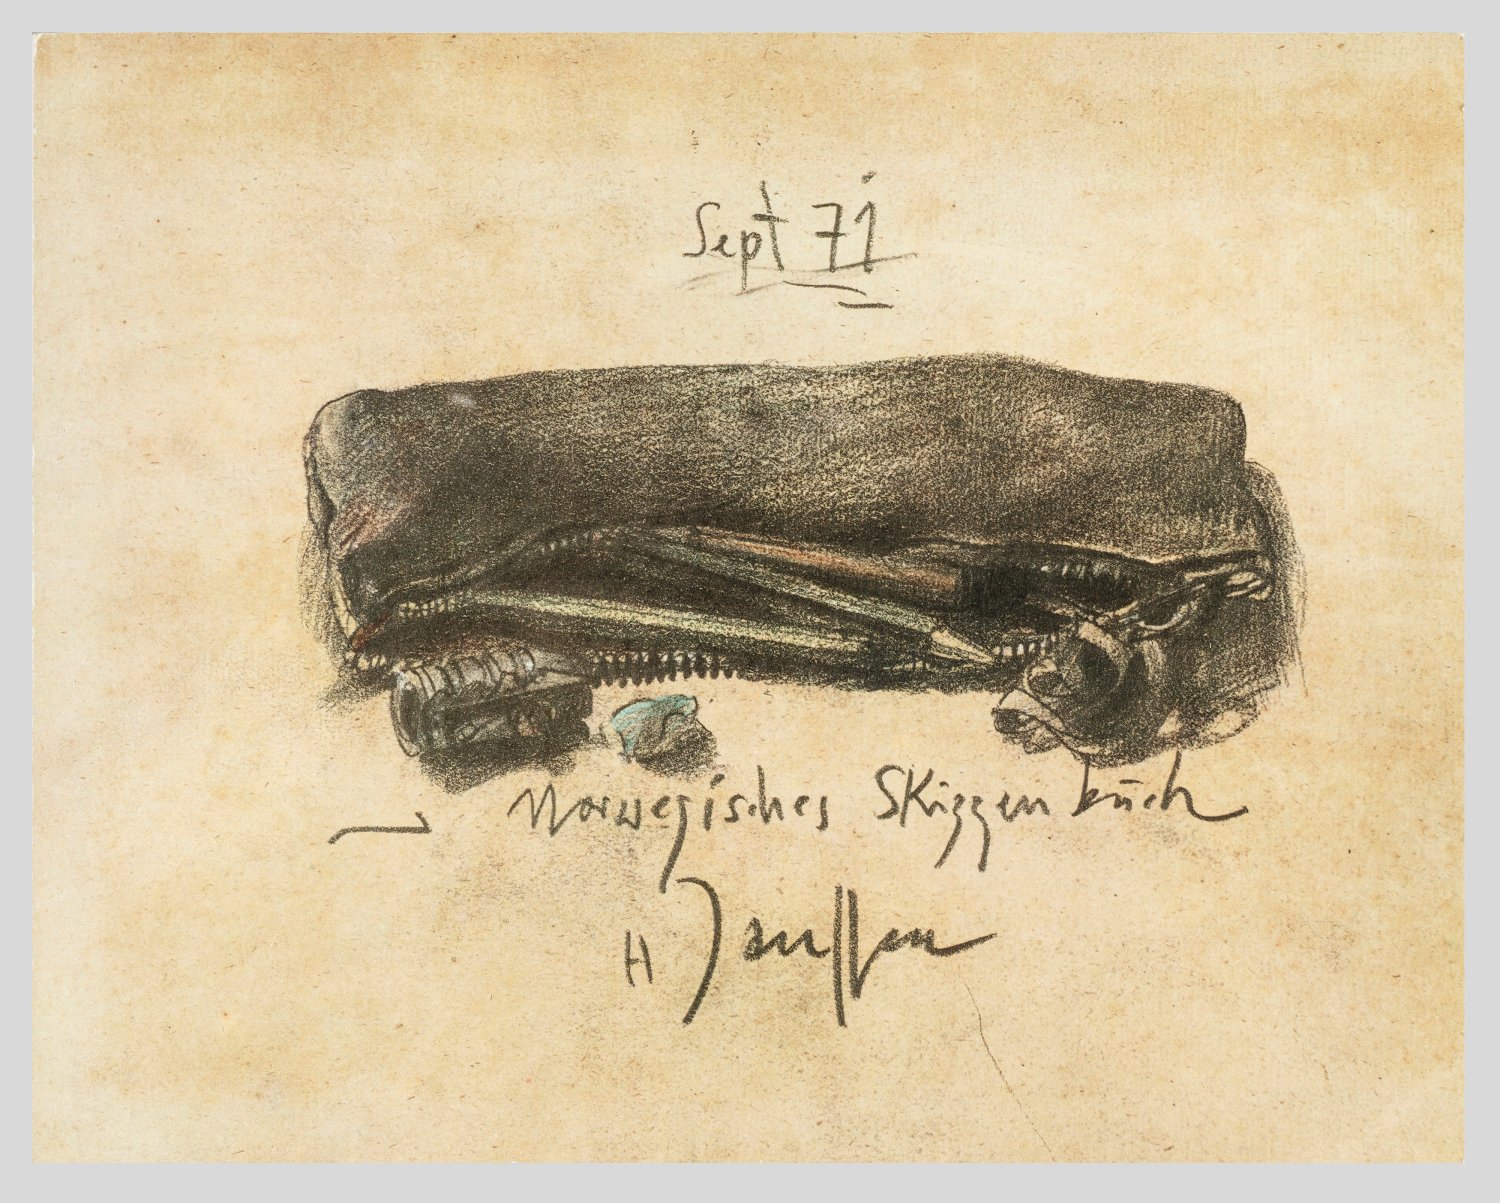 Sept 71
Norwegisches Skizzenbuch
H Janssen